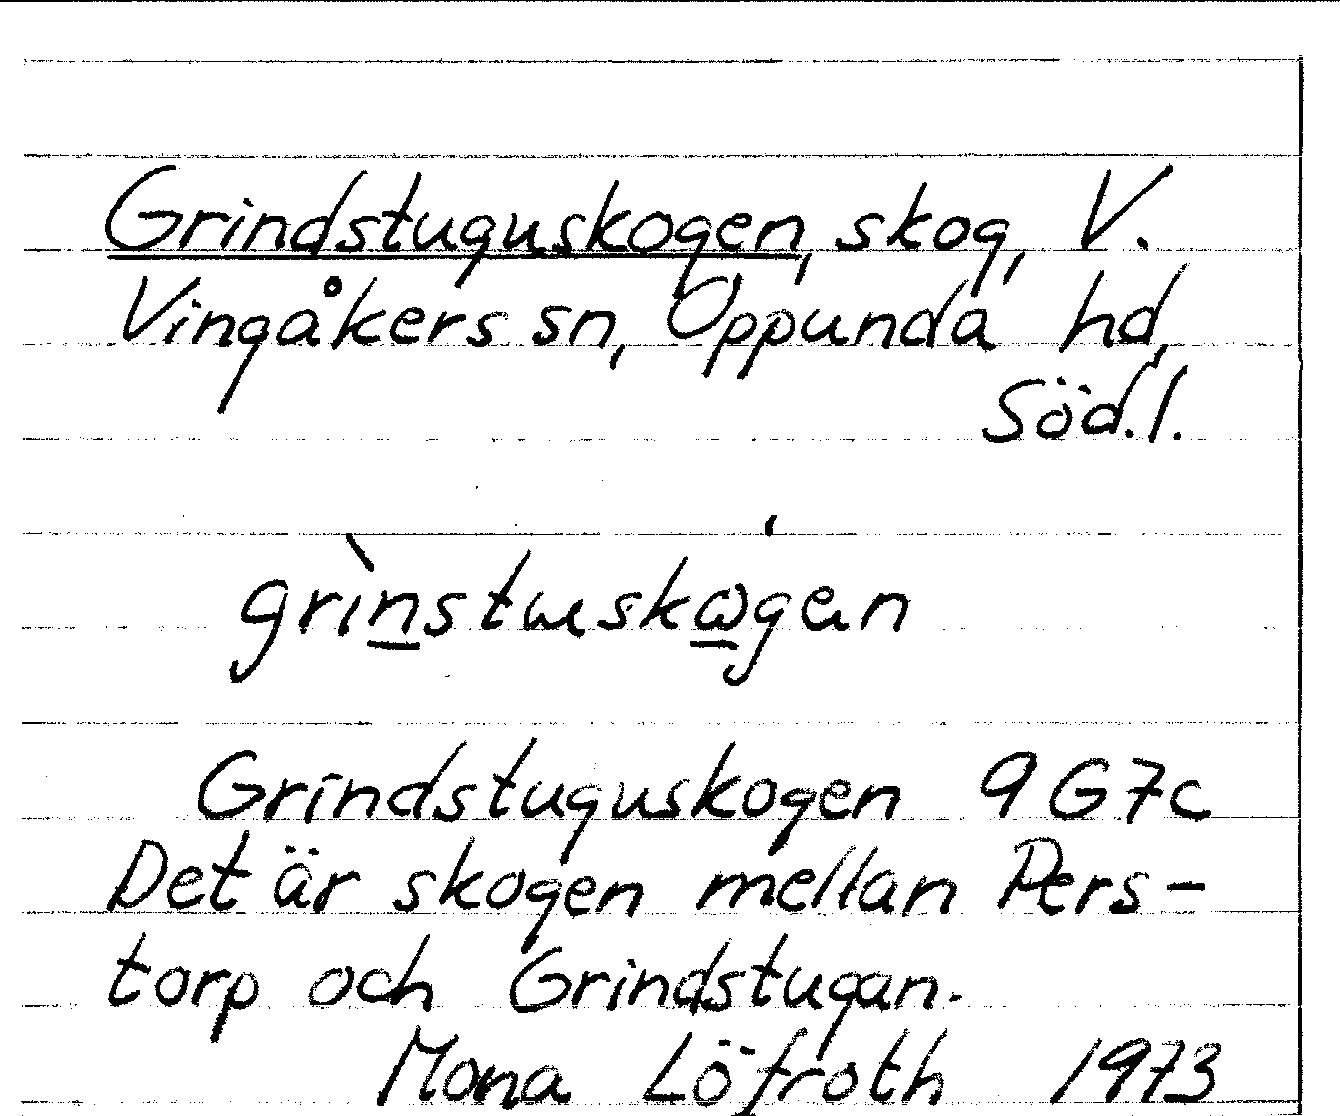 Grindstuguskogen, skog, V.
Vingåkers sn, Oppunda hd,
Söd.l.
grìnstuskogen
Grindstuguskogen 9G7c
Det är skogen mellan Pers-
torp och Grindstugan.
Mona Löfroth 1973